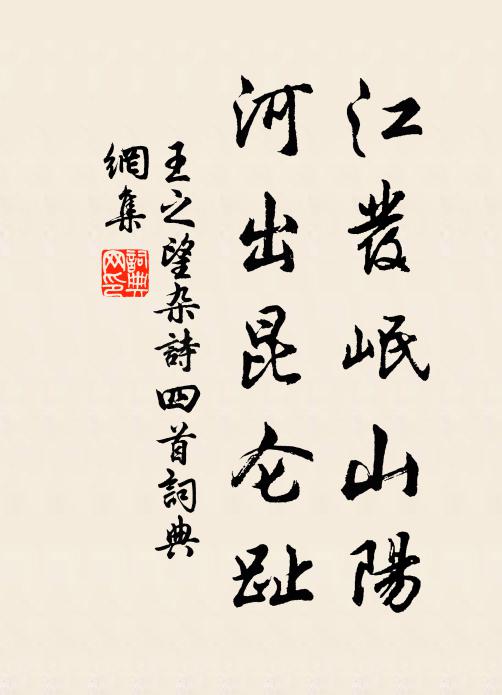 江發岷山陽
河出昆仑趾
王之望杂詩四首詞典
網集
詞典
网印